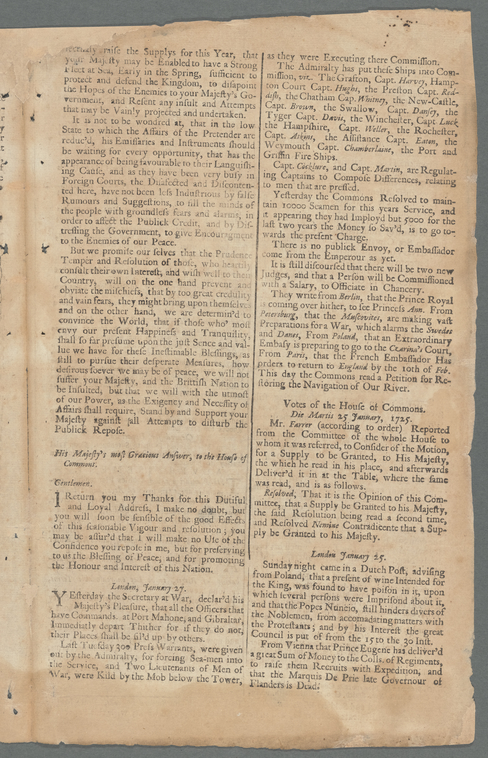 raise the Supplys for this Year, that
your Majesty may be Enabled to have a Strong
Fleet at Sea, Early in the Spring, sufficient to
protect and defend the Kingdom, to disapoint
the Hopes of the Enemies to your Majesty's Go-
vernment, and Resent any insult and Attempts
that may be Vainly projected and undertaken.
It is not to be wondred at, that in the low
State to which the Affairs of the Pretender are
reduc'd, his Emissaries and Instruments should
be waiting for every opportunity, that has the
appearance of being favourable to their Languish-
ing Cause, and as they have been very busy in
Foreign Courts, the Disaffected and Disconten-
ted here, have not been less Industrious by false
Rumours and Suggestions, to fill the minds of
the people with groundless fears and alarms, in
order to affect the Publick Credit, and by Dis-
tressing the Government, to give Encouragment
to the Enemies of our Peace.
But we promise our selves that the Prudence
Temper and Resolution of those, who heartily
consult their own Interest, and wish well to their
Country, will on the one hand prevent and
obviate the mischiefs, that by too great credulity
and vain fears, they might bring upon themselves
and on the other hand, we are determin'd to
convince the World, that if those who most
envy our present Happiness and Tranquility,
shall so far presume upon the just Sence and val-
ue we have for these Inestimable Blessings, as
still to pursue their desperate Measures, how
desirous soever we may be of peace, we will not
suffer your Majesty, and the Brittish Nation to
be Insulted, but that we will with the utmost
of our Power, as the Exigency and Necessity of
Affairs shall require, Stand by and Support your
Majesty against all Attempts to disturb the
Publick Repose.
His Majesty's most Gracious Answer, to the House of
Commons.
Gentlemen,
I Return you my Thanks for this Dutiful
and Loyal Address, I make no doubt, but
you will soon be sensible of the good Effects
of this seasonable Vigour and resolution; you
may be assur'd that I will make no Use of the
Confidence you repose in me, but for preserving
to us the Blessing of Peace, and for promoting
the Honour and Interest of this Nation.
London, January 27.
YEsterday the Secretary at War, declar'd his
Majesty's Pleasure, that all the Officers that
have Commands at Port Mahone, and Gibraltar,
immediately depart Thither for if they do not,
their Places shall be fill'd up by others.
Last Tuesday 300 Press Warrants, were given
out by the Admiralty, for forcing Sea-men into
the Service, and Two Lieutenants of Men of
War, were Kild by the Mob below the Tower,
as they were Executing there Commission.
The Admiralty has put these Ships into Com-
mission, viz. The Grafton, Capt. Harvey, Hamp-
ton Court Capt. Hughs, the Preston Capt. Red-
dish, the Chatham Cap. Whitney, the New-Castle,
Cap. Brown, the Swallow, Capt. Dansey, the
Tyger Capt. Davis, the Winchester, Capt Luck,
the Hampshire, Capt. Weller, the Rochester,
Cap. Atkins, the Assistance Capt. Eaton, the
Weymouth Capt. Chamberlaine, the Port and
Griffin Fire Ships.
Capt. Cockburn, and Capt. Martin, are Regulat-
ing Captains to Compose Differences, relating
to men that are pressed.
Yesterday the Commons Resolved to main-
tain 10000 Seamen for this years Service, and
it appearing they had Imployd but 5000 for the
last two years the Money so Sav'd, is to go to-
wards the present Charge.
There is no publick Envoy, or Embassador
come from the Emperour as yet.
It is still discoursed that there will be two new
Judges, and that a Person will be Commissioned
with a Salary, to Officiate in Chancery.
They write from Berlin, that the Prince Royal
is coming over hither, to see Princess Ann. From
Petersburg, that the Muscovites, are making vast
Preparations for a War, which alarms the Swedes
and Danes, From Poland, that an Extraordinary
Embasy is preparing to go to the Czarina's Court,
From Paris, that the French Embassador Has
orders to return to England by the 10th of Feb.
This day the Commons read a Petition for Re-
storing the Navigation of Our River.
Votes of the House of Commons,
Die Martis 25 January, 1725.
Mr. Farrer (according to order) Reported
from the Committee of the whole House to
whom it was referred, to Consider of the Motion,
for a Supply to be Granted, to His Majesty,
the which he read in his place, and afterwards
Deliver'd it in at the Table, where the same
was read, and is as follows.
Resolved, That it is the Opinion of this Com-
mittee, that a Supply be Granted to his Majesty,
the said Resolution being read a second time,
and Resolved Nemine Contradicente that a Sup-
ply be Granted to his Majesty.
London January 25.
Sunday night came in a Dutch Post, advising
from Poland, that a present of wine Intended for
the King, was found to have poison in it, upon
which several persons were Imprisond about it,
and that the Popes Nuncio, still hinders divers of
the Noblemen, from accomadating matters with
the Protestants; and by his Interest the great
Council is put of from the 15 to the 30 Inst.
From Vienna that Prince Eugene has deliver'd
a great Sum of Money to the Colls. of Regiments,
to raise them Recruits with Expedition, and
that the Marquis De Prie late Governour of
Flanders is Dead.